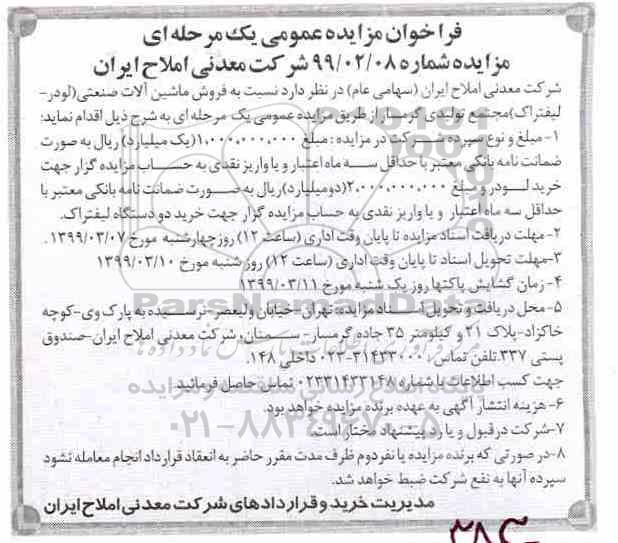 فراخوان مزایده عمومی یک مرحله ای
مزایده شماره ۹۹/۰۲/۰۸ شرکت معدنی املاح ایران
شرکت معدنی املاح ایران (سهامی عام) در نظر دارد نسبت به فروش ماشین آلات صنعتی(لودر-
لیفتراک)مجتمع تولیدی گرمسار از طریق مزایده عمومی یک مرحله ای به شرح ذیل اقدام نماید:
۱- مبلغ و نوع سپرده شرکت در مزایده : مبلغ ۱،۰۰۰،۰۰۰،۰۰۰(یک میلیارد) ریال به صورت
ضمانت نامه بانکی معتبر با حداقل سه ماه اعتبار و یا واریز نقدی به حساب مزایده گزار جهت
خرید لودر و مبلغ ۲،۰۰۰،۰۰۰،۰۰۰(دومیلیارد)ریال به صورت ضمانت نامه بانکی معتبر با
حداقل سه ماه اعتبار و یا واریز نقدی به حساب مزایده گزار جهت خرید دو دستگاه لیفتراک.
۲- مهلت دریافت اسناد مزایده تا پایان وقت اداری (ساعت ۱۲) روزچهارشنبه مورخ ۱۳۹۹/۰۳/۰۷ .
۳-مهلت تحویل اسناد تا پایان وقت اداری (ساعت ۱۲) روز شنبه مورخ ۱۳۹۹/۰۳/۱۰
۴- زمان گشایش پاکتها روز یک شنبه مورخ ۱۳۹۹/۰۳/۱۱
ParsNamadData
۵- محل دریافت و تحویل اسناد مزایده: تهران-خیابان ولیعصر-نرسیده به پارک وی-کوچه
خاکزاد-پلاک ۲۱ و کیلومتر ۳۵ جاده گرمسار- سمنان، شرکت معدنی املاح ایران-صندوق
پستی ۳۳۷.تلفن تماس: ۳۱۴۳۳۰۰۰-۰۲۳ داخلی ۱۴۸.
جهت کسب اطلاعات با شماره ۰۲۳۳۱۴۳۳۱۴۸ تماس حاصل فرمائید
۶- هزینه انتشار آگهی به عهده برنده مزایده خواهد بود.
۰۲۱-۸۸۳۴۹۶۷۰-۵
۷-شرکت در قبول و یا رد پیشنهاد مختار است.
۸-در صورتی که برنده مزایده یا نفر دوم ظرف مدت مقرر حاضر به انعقاد قرارداد انجام معامله نشود
سپرده آنها به نفع شرکت ضبط خواهد شد.
مدیریت خرید و قراردادهای شرکت معدنی املاح ایران